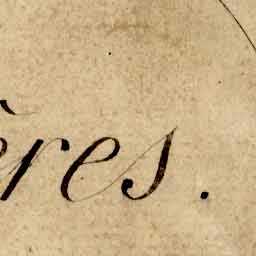 ères.